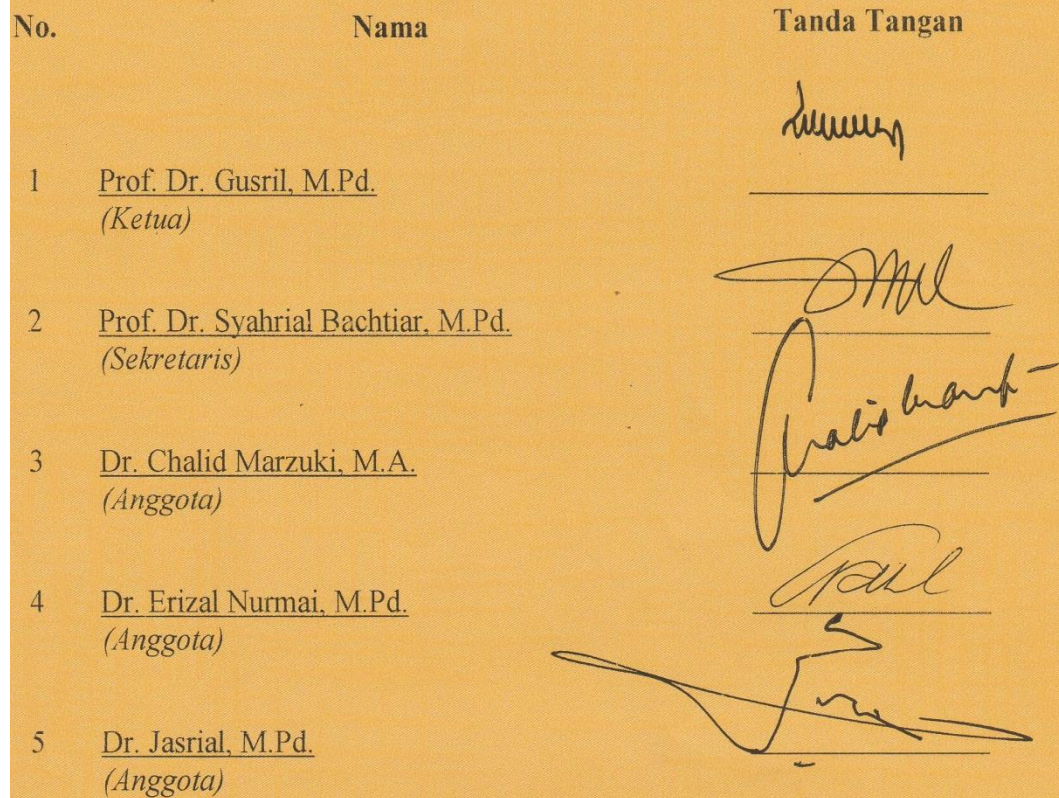 No. Nama Tanda Tangan
1 Prof. Dr. Gusril, M.Pd.
(Ketua)
2 Prof. Dr. Syahrial Bachtiar, M.Pd.
(Sekretaris)
3 Dr. Chalid Marzuki, M.A.
(Anggota)
4 Dr. Erizal Nurmai, M.Pd.
(Anggota)
5 Dr. Jasrial, M.Pd.
(Anggota)